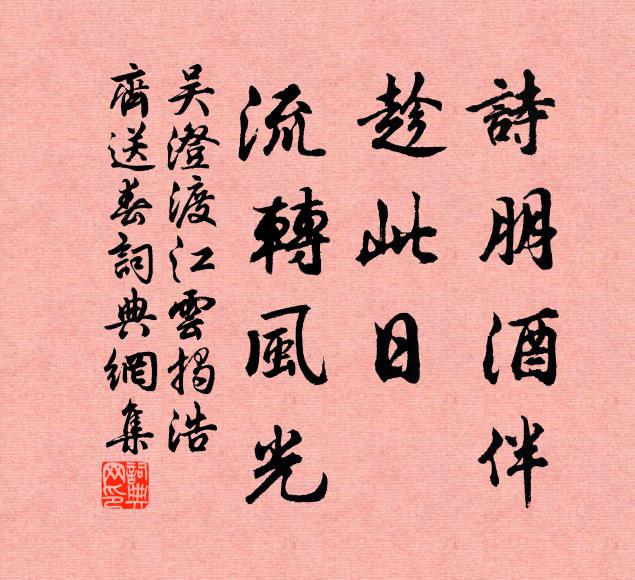 詩朋酒伴
趁此日
流轉風光
吳澄渡江雲揭浩
齋送春詞典網集
詞典网印